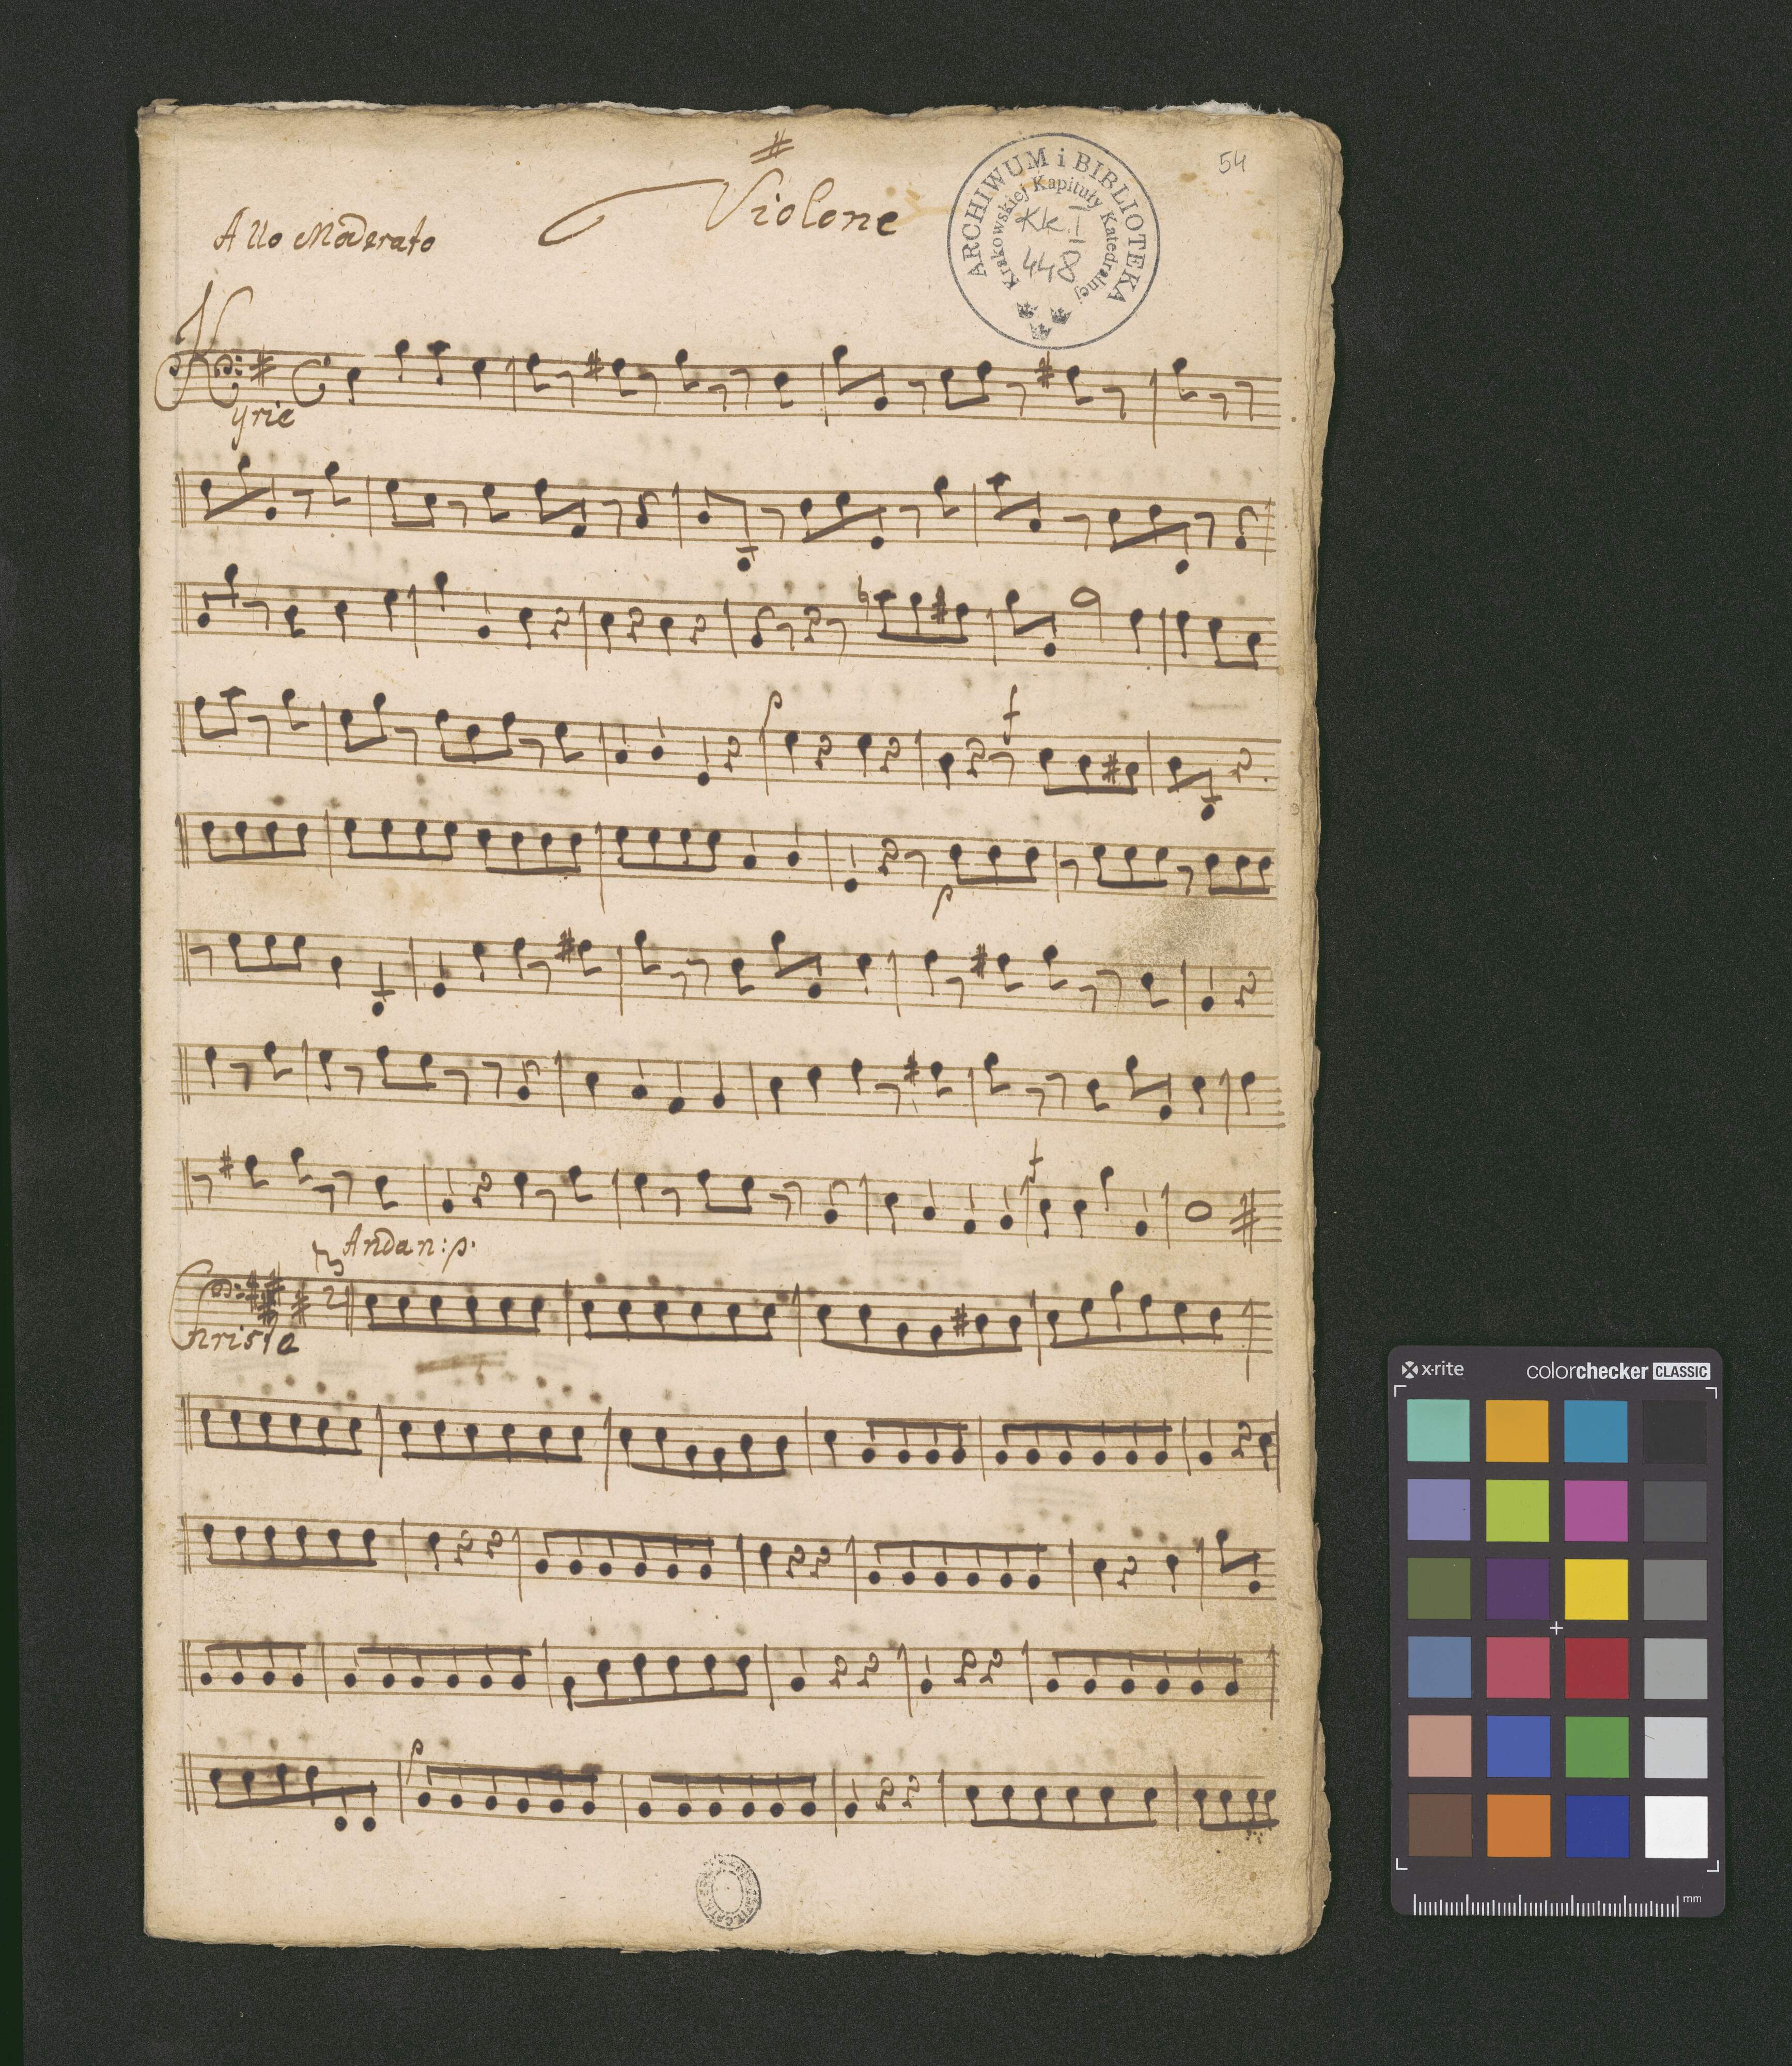 54
Violone
Allo Moderato
ARCHIWUM i BIBLIOTEKA
Krakowskiej Kapituły Katedralnej
Kk.I
448
Kyrie
p
f
p
f
Andan: p.
3
2
Christe
p
x-rite
colorchecker CLASSIC
mm